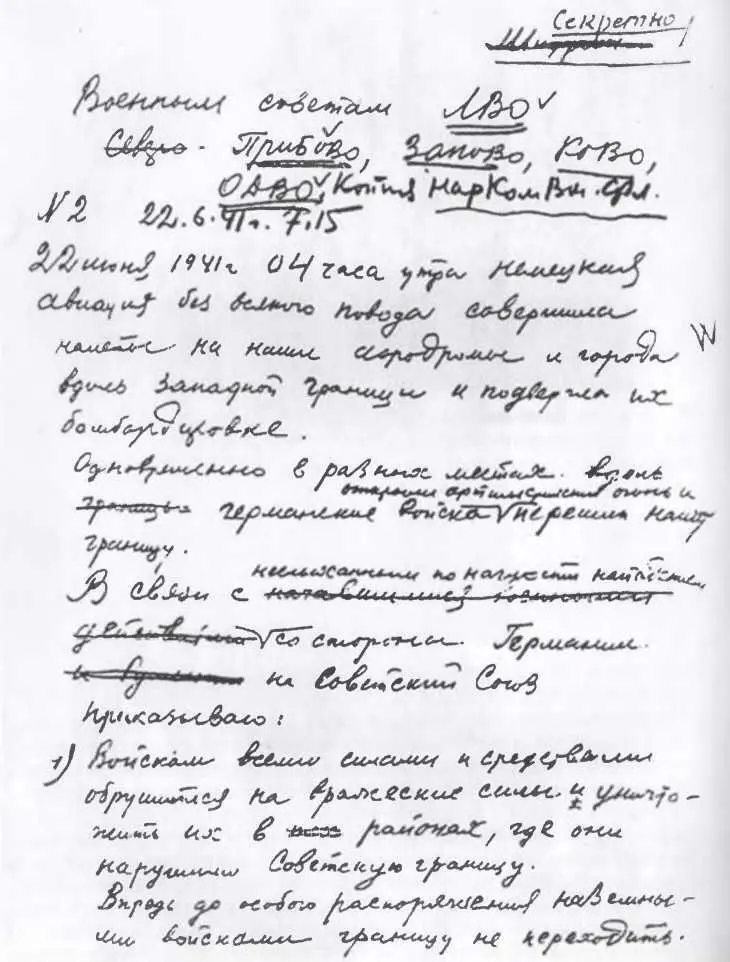 Секретно
Шифровки
Военным советам ЛВО
Северо- Прибово, Запово, Ково,
ОдВО, Копия НарКом Вм. Фл.
N 2 22.6.41г. 7.15
22 июня 1941г 04 часа утра немецкая
авиация без всякого повода совершила
налеты на наши аэродромы и города
вдоль западной границы и подвергла их
бомбардировке.
Одновременно в разных местах вдоль
открыли артиллерийский огонь и
границы германские войска перешли нашу
границу.
неслыханным по наглости нападением
В связи с начавшимися военными
действиями со стороны Германии
и на Советский Союз
приказываю:
1) Войскам всеми силами и средствами
обрушится на вражеские силы и уничто-
жить их в районах, где они
нарушили Советскую границу.
Впредь до особого распоряжения наземны-
ми войсками границу не переходить.